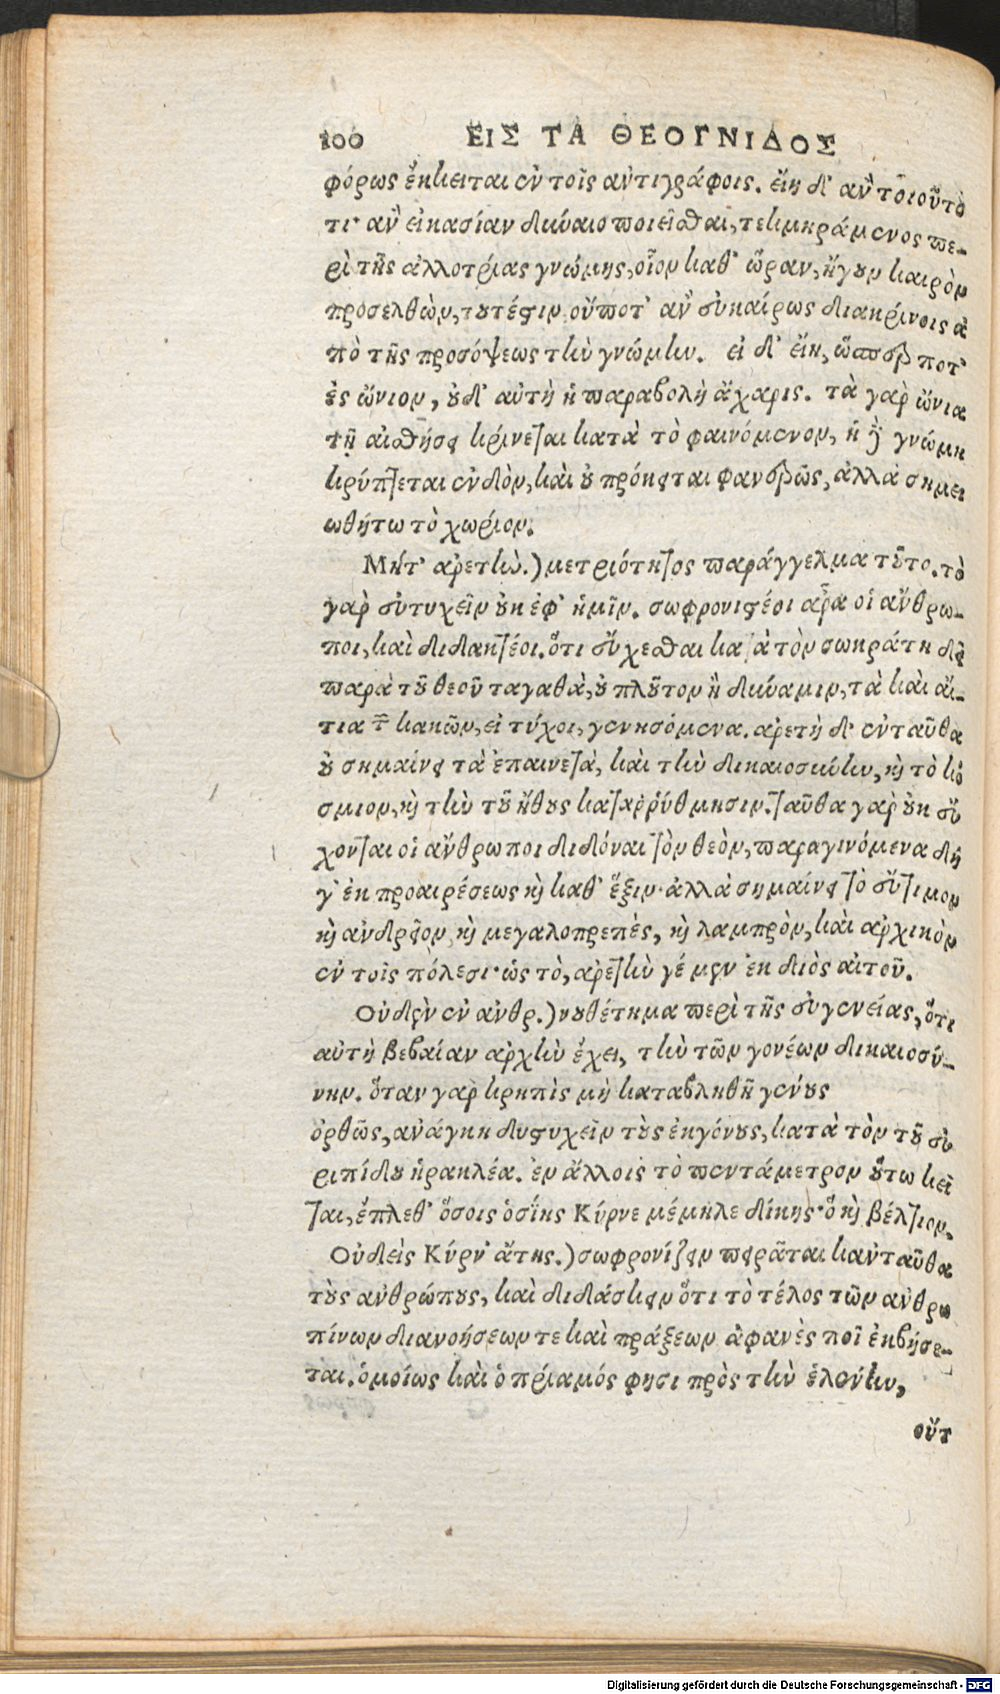 100 ΕΙΣ ΤΑ ΘΕΟΓΝΙΔΟΣ
φόρως ἔκκειται ἐν τοῖς ἀντιγράφοις. εἴη δ' ἂν τοιοῦτό
τι· ἂν εἰκασίαν δικαίαν ποιεῖσθαι, τεκμηράμενος πε-
ρὶ τῆς ἀλλοτρίας γνώμης, οἷον καθ' ὥραν, ἤγουν καιρὸν
προσελθὼν, τουτέστιν οὔποτ' ἂν εὐκαίρως διακρίνοις ἀ
πὸ τῆς προσόψεως τὴν γνώμην. εἰ δ' εἴη, ὥσπερ ποτ'
ἐς ὤνιον, οὐδ' αὐτὴ ἡ παραβολὴ ἄχαρις. τὰ γὰρ ὤνια
τῇ αἰσθήσει κρίνεται κατὰ τὸ φαινόμενον, ἡ δὲ γνώμη
κρύπτεται ἔνδον, καὶ οὐ πρόεισται φανερῶς, ἀλλὰ σημει
ωθήτω τὸ χωρίον.
Μήτ' ἀρετὴν.) μετριότητος παράγγελμα τοῦτο. τὸ
γὰρ εὐτυχεῖν οὐκ ἐφ' ἡμῖν. σωφρονιστέοι ἄρα οἱ ἄνθρω-
ποι, καὶ διδακτέοι. ὅτι εὔχεσθαι κατὰ τὸν σωκράτη δεῖ
παρὰ τοῦ θεοῦ ταγαθὰ, οὐ πλοῦτον ἢ δύναμιν, τὰ καὶ αἴ-
τια τῶν κακῶν, εἰ τύχοι, γενησόμενα. ἀρετὴ δ' ἐνταῦθα
οὐ σημαίνει τὰ ἐπαινετὰ, καὶ τὴν δικαιοσύνην, καὶ τὸ κό
σμιον, καὶ τὴν τοῦ ἤθους καταρρύθμησιν. ταῦθα γὰρ οὐκ εὔ
χονται οἱ ἄνθρωποι διδόναι τὸν θεὸν, παραγινόμενα δή
γ' ἐκ προαιρέσεως καὶ καθ' ἕξιν· ἀλλὰ σημαίνει τὸ εὔτιμον
καὶ ἀνδρεῖον, καὶ μεγαλοπρεπὲς, καὶ λαμπρὸν, καὶ ἀρχικὸν
ἐν τοῖς πόλεσι· ὡς τὸ, ἀρετὴν γέ μεν ἐκ διὸς αἰτοῦ.
Οὐδεὶν ἐν ἀνθρ.) νουθέτημα περὶ τῆς εὐγενείας, ὅτι
αὐτὴ βεβαίαν ἀρχὴν ἔχει, τὴν τῶν γονέων δικαιοσύ-
νην. ὅταν γὰρ κρηπὶς μὴ καταβληθῇ γένους
ὀρθῶς, ἀνάγκη δυστυχεῖν τοὺς ἐκγόνους, κατὰ τὸν τοῦ εὐ
ριπίδου ἡρακλέα. ἐν ἄλλοις τὸ πεντάμετρον οὕτω κεῖ
ται, ἔπλεθ' ὅσοις ὁσίης Κύρνε μέμηλε δίκης· ὃ καὶ βέλτιον.
Οὐδεὶς Κύρν' ἄτης.) σωφρονίζειν πειρᾶται κἀνταῦθα
τοὺς ἀνθρώπους, καὶ διδάσκειν ὅτι τὸ τέλος τῶν ἀνθρω
πίνων διανοήσεων τε καὶ πράξεων ἀφανὲς ποῖ ἐκβήσε-
ται. ὁμοίως καὶ ὁ πρίαμός φησι πρὸς τὴν ἑλένην,
οὔτ
Digitalisierung gefördert durch die Deutsche Forschungsgemeinschaft - DFG